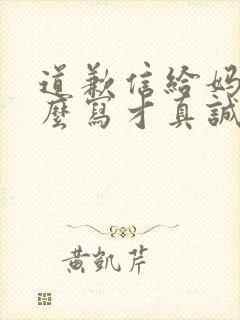 道歉信給妈
麼寫才真誠
黃凱芹